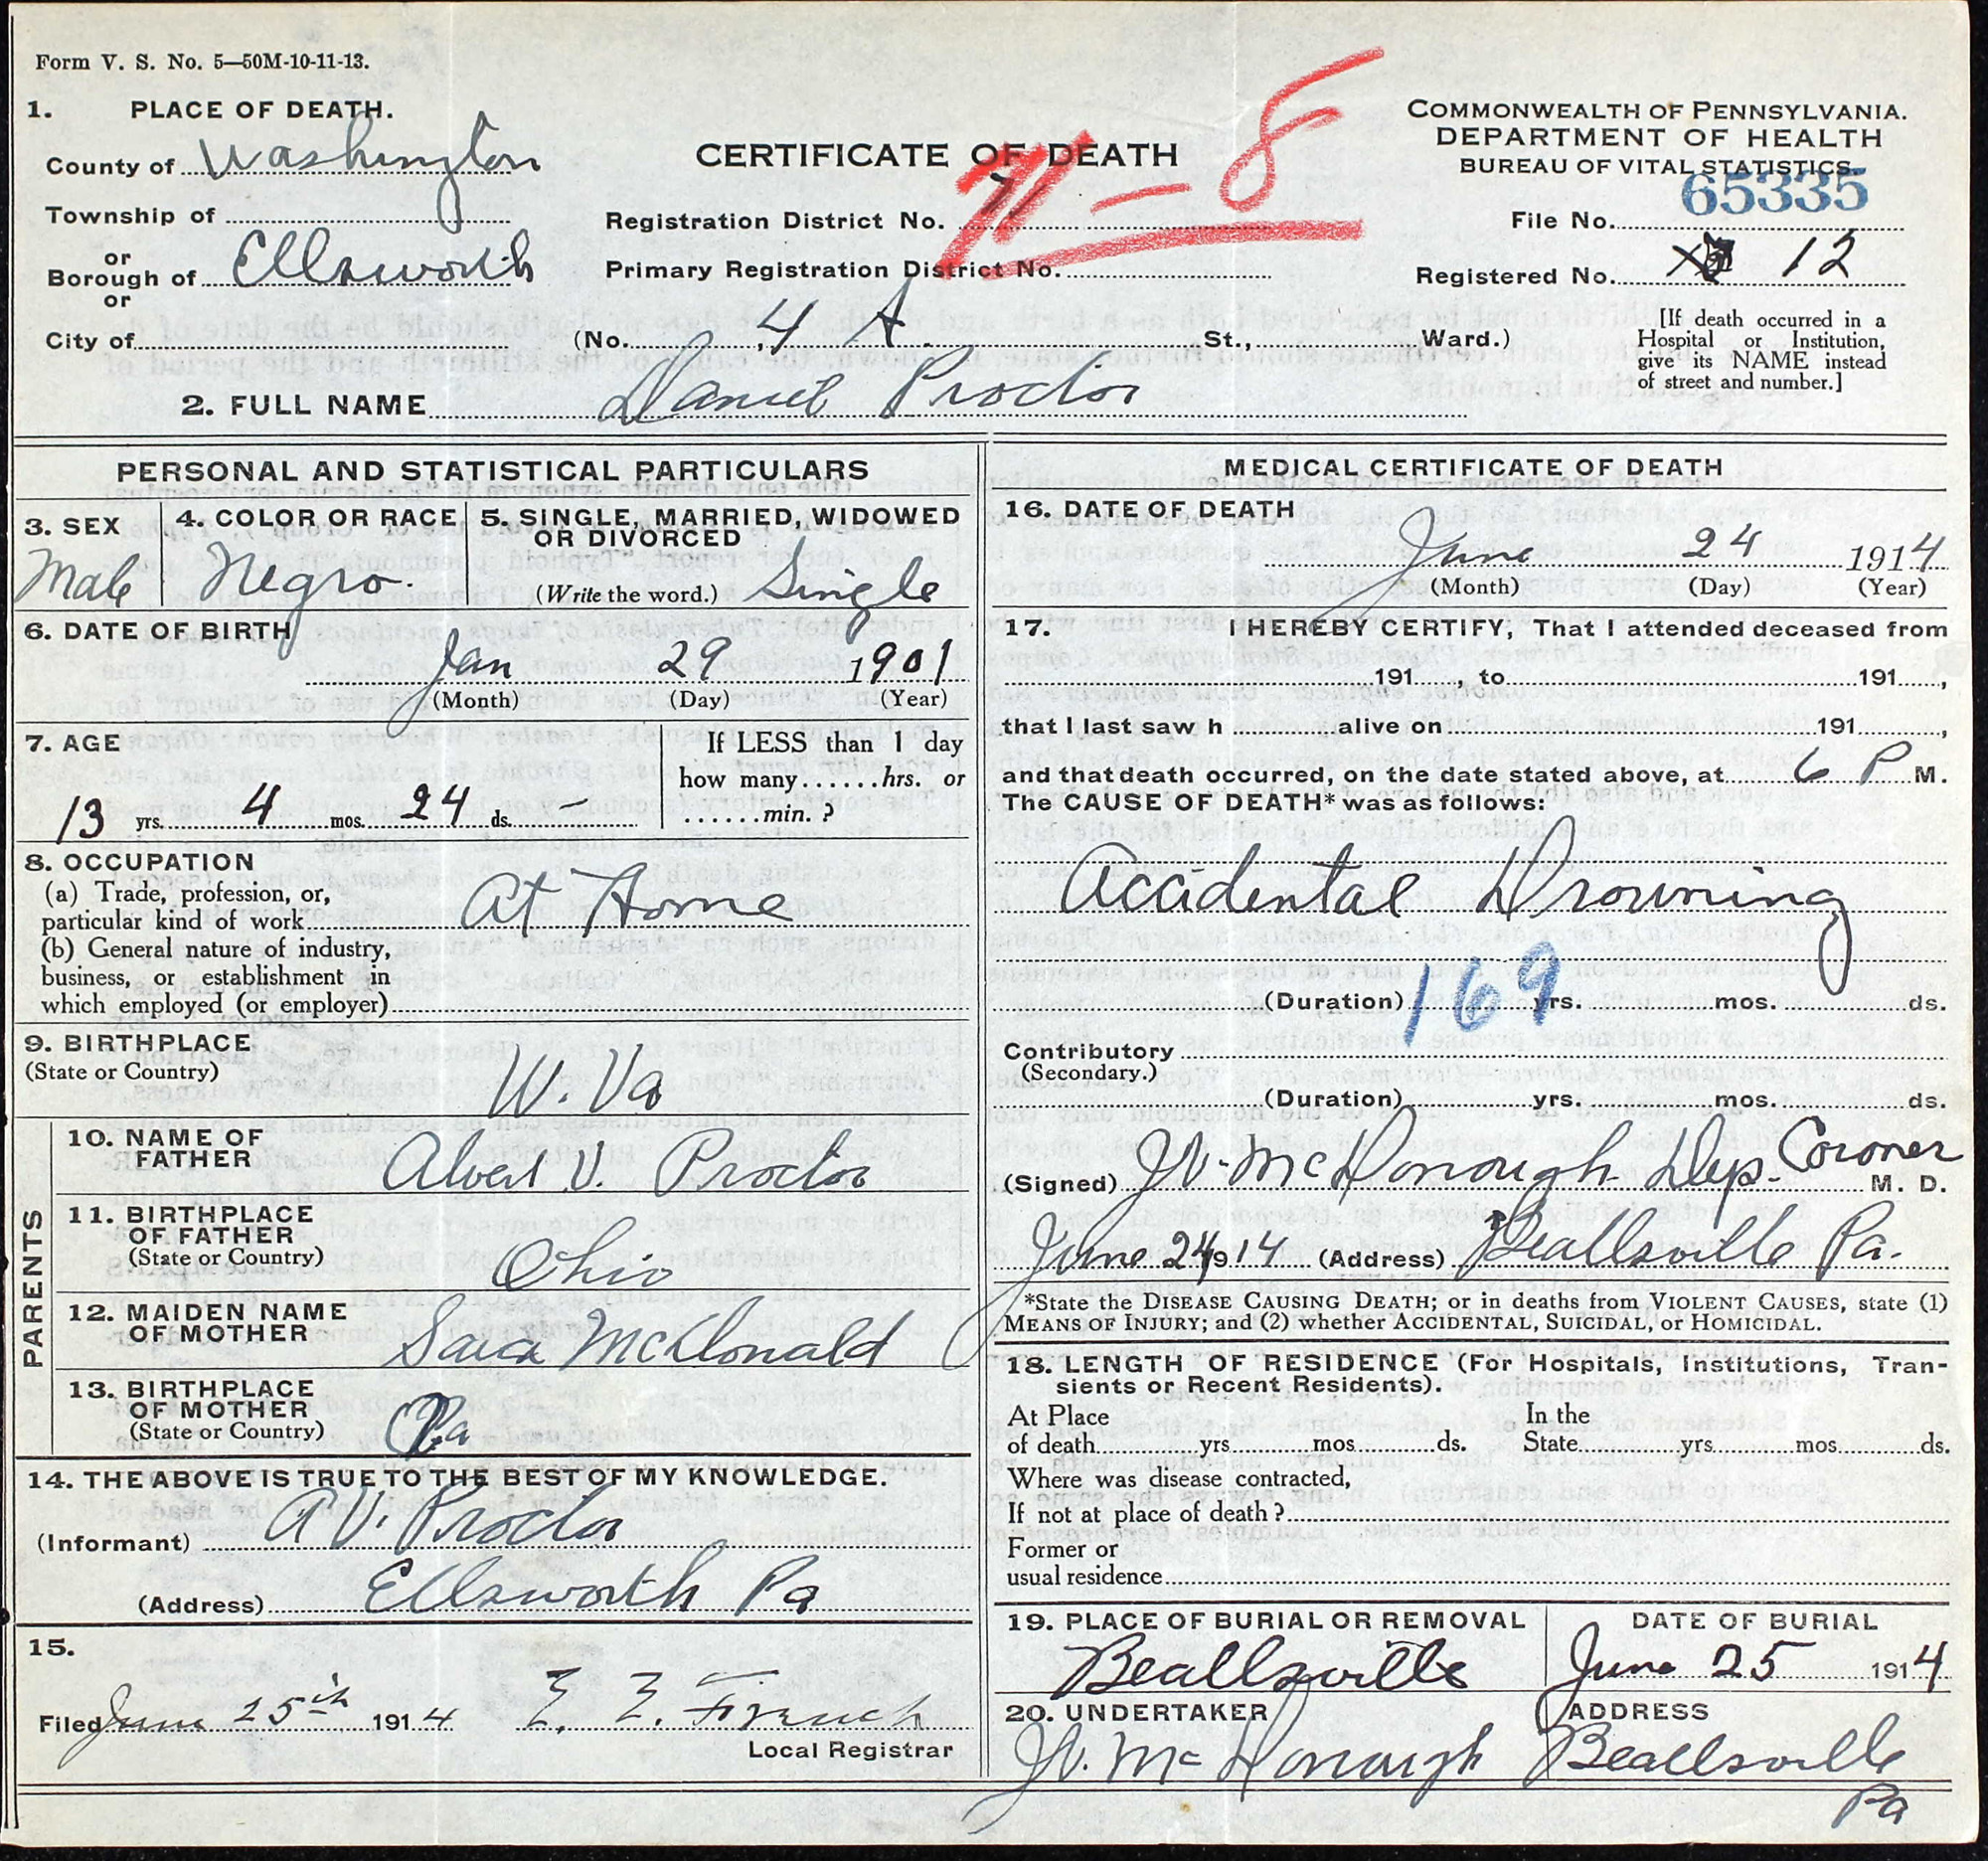 Form V. S. No. 5—50M-10-11-13.
1. PLACE OF DEATH.
County of Washington
Township of
or
Borough of Ellsworth
or
City of
CERTIFICATE OF DEATH
Registration District No.
Primary Registration District No.
(No. 4 A St., Ward.)
COMMONWEALTH OF PENNSYLVANIA.
DEPARTMENT OF HEALTH
BUREAU OF VITAL STATISTICS.
File No. 65335
Registered No. 12
[If death occurred in a
Hospital or Institution,
give its NAME instead
of street and number.]
2. FULL NAME Daniel Proctor
PERSONAL AND STATISTICAL PARTICULARS
3. SEX
Male
4. COLOR OR RACE
Negro.
5. SINGLE, MARRIED, WIDOWED
OR DIVORCED
(Write the word.) Single
6. DATE OF BIRTH
Jan 29 1901
(Month) (Day) (Year)
7. AGE
13 yrs. 4 mos. 24 ds. –
If LESS than 1 day
how many......hrs. or
......min. ?
8. OCCUPATION
(a) Trade, profession, or,
particular kind of work At Home
(b) General nature of industry,
business, or establishment in
which employed (or employer)
9. BIRTHPLACE
(State or Country)
W. Va
PARENTS
10. NAME OF
FATHER
Albert V. Proctor
11. BIRTHPLACE
OF FATHER
(State or Country)
Ohio
12. MAIDEN NAME
OF MOTHER
Sara McDonald
13. BIRTHPLACE
OF MOTHER
(State or Country)
Pa
14. THE ABOVE IS TRUE TO THE BEST OF MY KNOWLEDGE.
(Informant) A V. Proctor
(Address) Ellsworth Pa
15.
Filed June 25th 1914 E. E. French
Local Registrar
MEDICAL CERTIFICATE OF DEATH
16. DATE OF DEATH
June 24 1914
(Month) (Day) (Year)
17. I HEREBY CERTIFY, That I attended deceased from
191 , to 191 ,
that I last saw h alive on 191 ,
and that death occurred, on the date stated above, at 6 P M.
The CAUSE OF DEATH* was as follows:
Accidental Drowning
169
(Duration) yrs. mos. ds.
Contributory
(Secondary.)
(Duration) yrs. mos. ds.
(Signed) J.V. McDonough Dep. Coroner M. D.
June 24 1914 (Address) Beallsville Pa.
*State the DISEASE CAUSING DEATH; or in deaths from VIOLENT CAUSES, state (1)
MEANS OF INJURY; and (2) whether ACCIDENTAL, SUICIDAL, or HOMICIDAL.
18. LENGTH OF RESIDENCE (For Hospitals, Institutions, Tran-
sients or Recent Residents).
At Place In the
of death yrs mos ds. State yrs mos ds.
Where was disease contracted,
If not at place of death ?
Former or
usual residence
19. PLACE OF BURIAL OR REMOVAL
Beallsville
DATE OF BURIAL
June 25 1914
20. UNDERTAKER
J.V. McDonough
ADDRESS
Beallsville
Pa